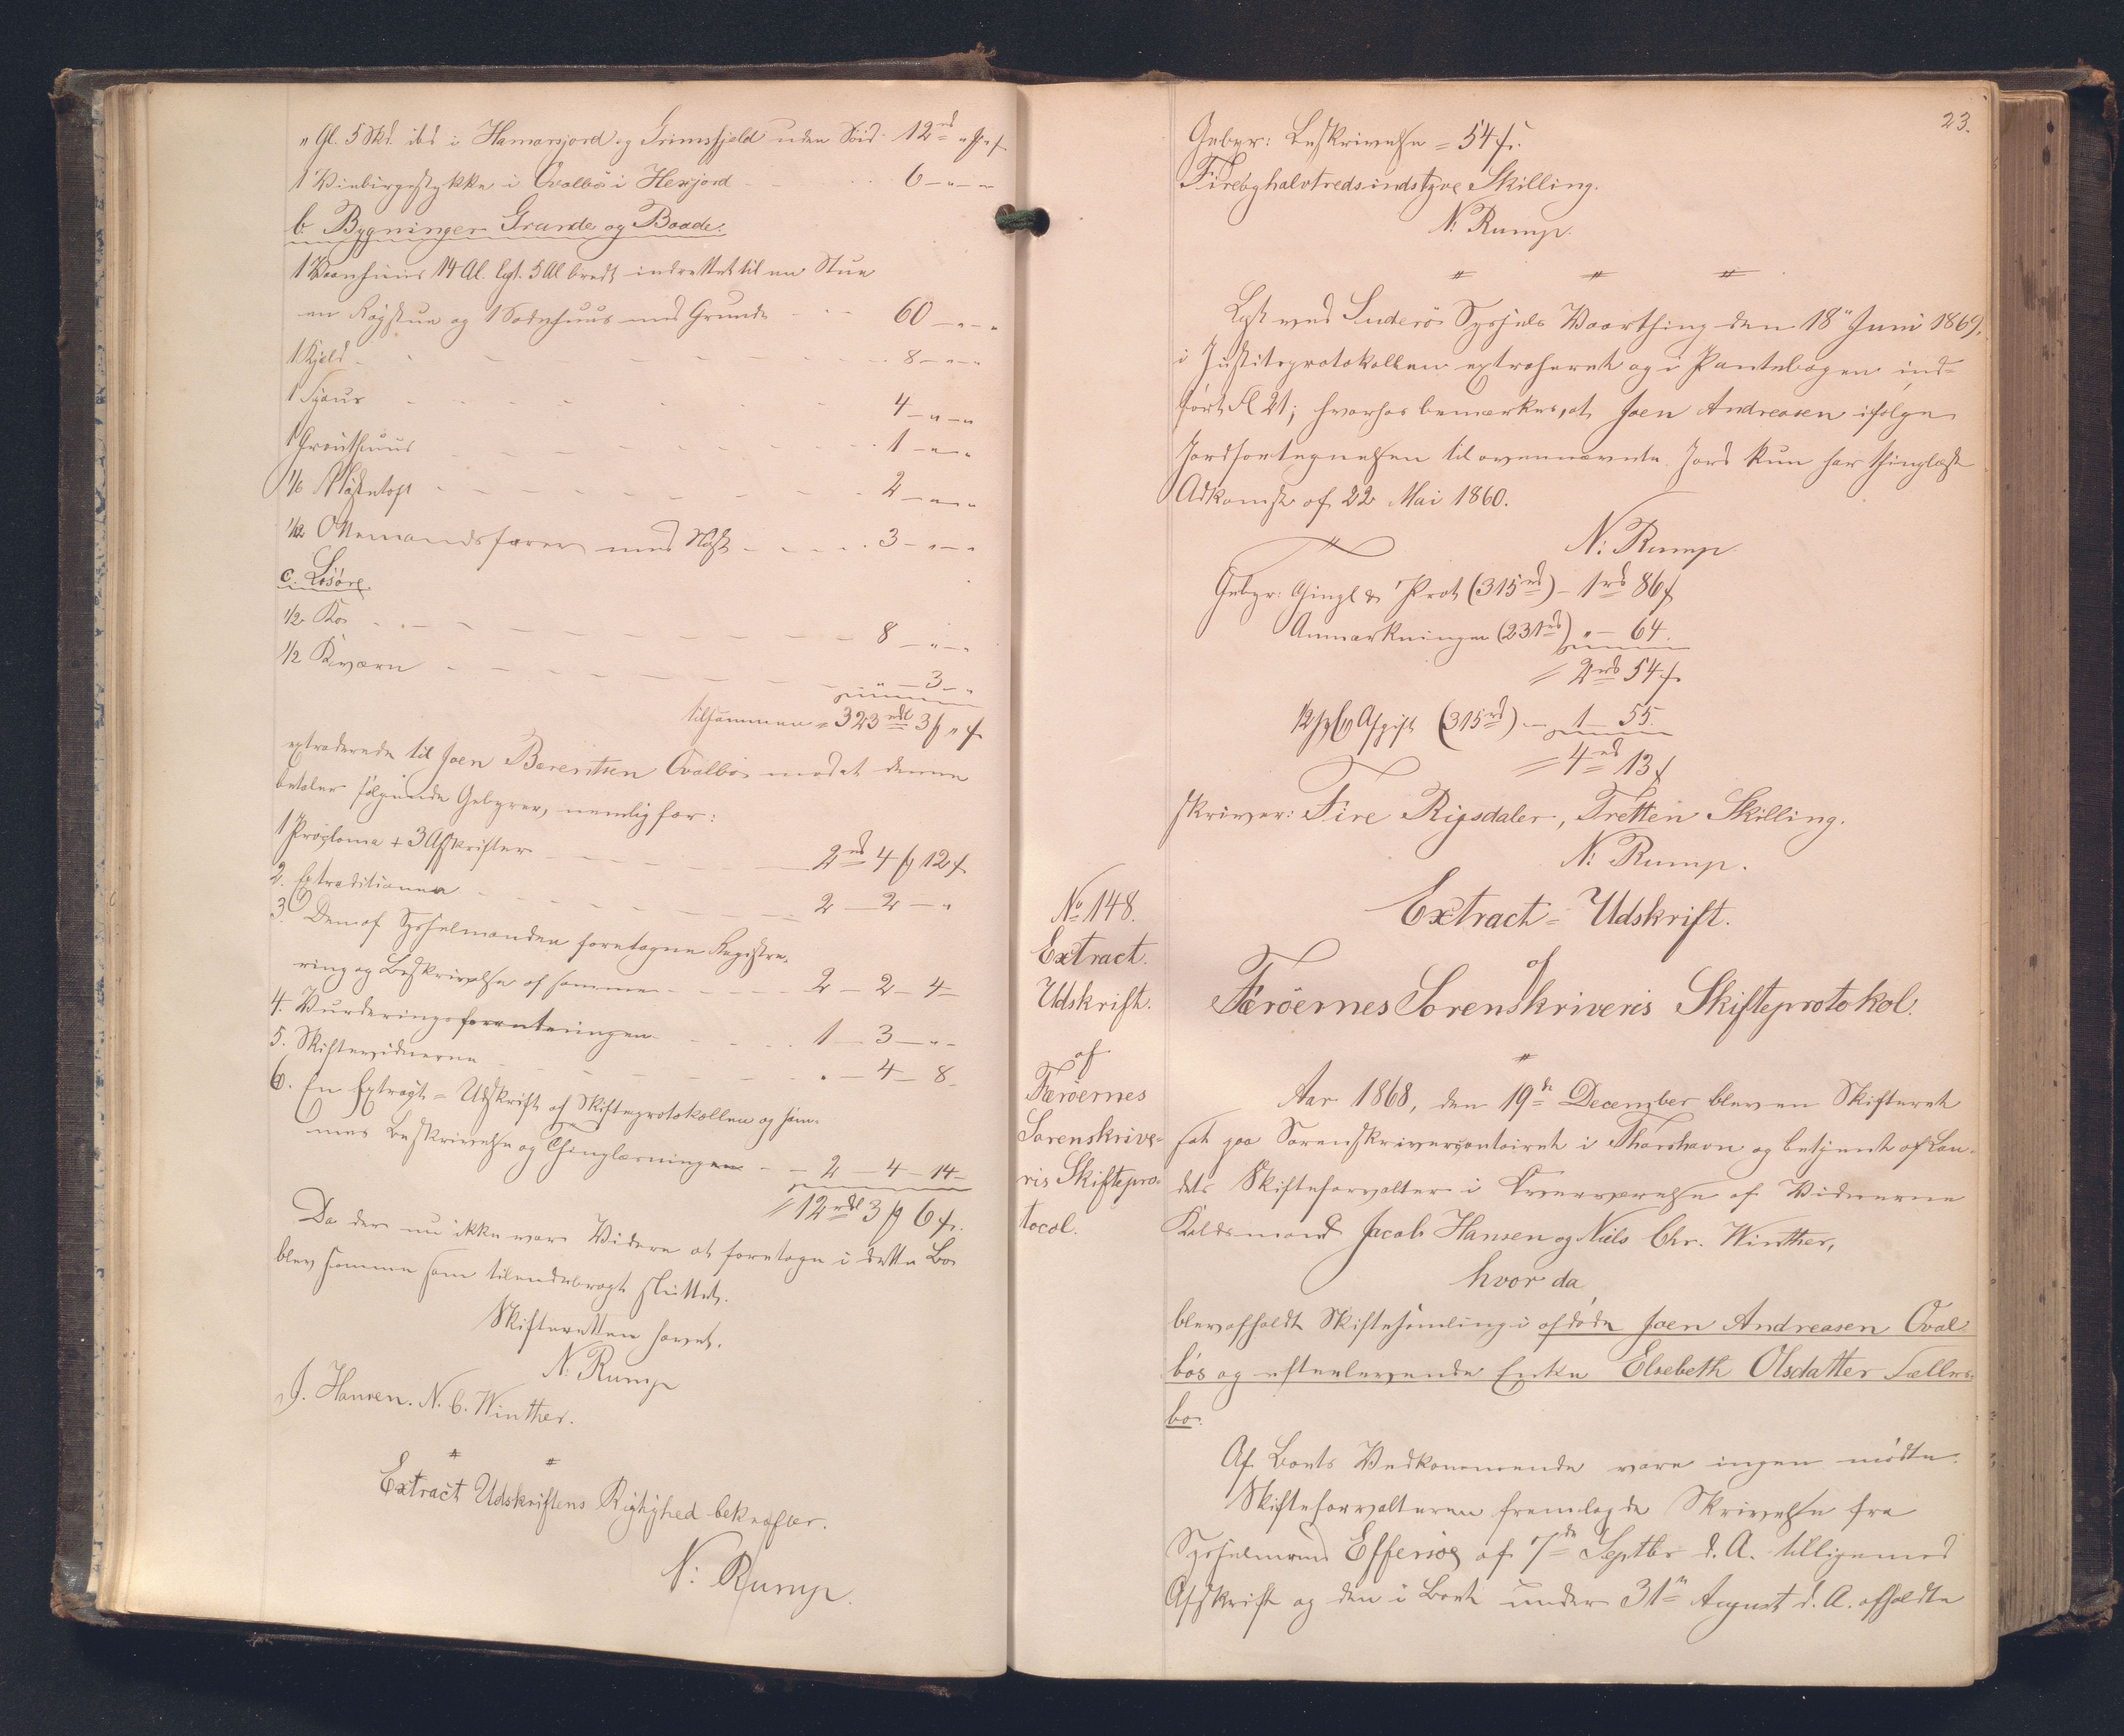 " Gl. 5 Skd. ibd i Hamarsjord og Grimsfjeld uden Seid. 12 rd " ſs " f
1 Vinbirgestykke i Qvalbø i Hexjord 6 — " — "
b. Bygninger Grunde og Baade.
1 Vaanhuus 14 Al. lgt. 5 Al bredt indrettet til en Stue
en Røgstue og 1 Sodnhuus med Grunde 60 — " — "
1 Kjeld 8 — " — "
1 4 — " — "
1 Grouthuus 1 — " — "
1/6 Nøstetoft 2 — " — "
1/12 Ottemandsfarer med Nøst 3 — " — "
c. Løsøre
1/2 Ko 8 — " — "
1/2 Kværn " — 3 — "
tilsammen = 323 rdl 3 ſs " f
extraderede til Joen Barentsen Qvalbø, mod at denne
betaler følgende Gebyrer, nemlig for:
1 Proclama + 3 Afskrifter 2 rd 4 ſs 12 f
2. Extraditionen 2 — 2 — "
3. Den af Sysselmanden foretagne Registre-
ring og Beskrivelse af samme 2 — 2 — 4 —
4. Vurderingsforretningen 1 — 3 — " —
5. Skiftevidnerne " — 4 — 8
6. En Extract-Udskrift af Skifteprotokollen og sam-
mes Beskrivelse og Thinglæsningen 2 — 4 — 14 —
= 12 rdl 3 ſs 6 f.
Da der nu ikke var Videre at foretage i dette Bo
blev samme som tilendebragt sluttet.
Skifteretten hævet.
N. Rump
J. Hansen. N. C. Winther.
Extract Udskriftens Rigtighed bekræfter.
N: Rump.
23.
Gebyr: Beskrivelse = 54 f.
Fireoghalvtredsindstyve Skilling.
N. Rump.
Læst ved Suderø Syssels Vaarthing den 18de Juni 1869,
i Justitsprotokollen extraheret og i Pantebogen ind-
ført Fol 21; hvorhos bemærkes, at Joen Andreasen ifølge
Jordfortegnelsen til ovennævnte Jord kun har thinglæst
Adkomst af 22 Mai 1860.
N: Rump.
Gebyr: Thingl & Prot (315 rd) — 1 rd 86 f
Anmærkningen (231 rd) " — 64.
= 2 rd 54 f
1/2 pCt Afgift (315 rd) — 1 — 55.
= 4 rd 13 f
skriver: Fire Rigsdaler, Tretten Skilling.
N: Rump.
No 148.
Extract.
Udskrift.
af
Færöernes
Sorenskrive-
ris Skiftepro-
tocol.
Extract-Udskrift.
af
Færöernes Sorenskriveris Skifteprotokol.
Aar 1868, den 19de December blev en Skifteret
sat paa Sorenskrivercontoiret i Thorshavn og betjent af Lan-
dets Skifteforvalter i Overværelse af Vidnerne
Koldsmand Jacob Hansen og Niels Chr. Winther,
hvor da
blev afholdt Skiftesamling i afdøde Joen Andreasen Qval-
bös og efterlevende Enke Elsebeth Olsdatter Fælles-
bo.
Af Boets Vedkommende vare ingen mödte.
Skifteforvalteren fremlagde Skrivelse fra
Sysselmand Effersøe af 7de Septbr d. A. tilligemed
Afskrift og den i Boet under 31te August d. A. afholdte